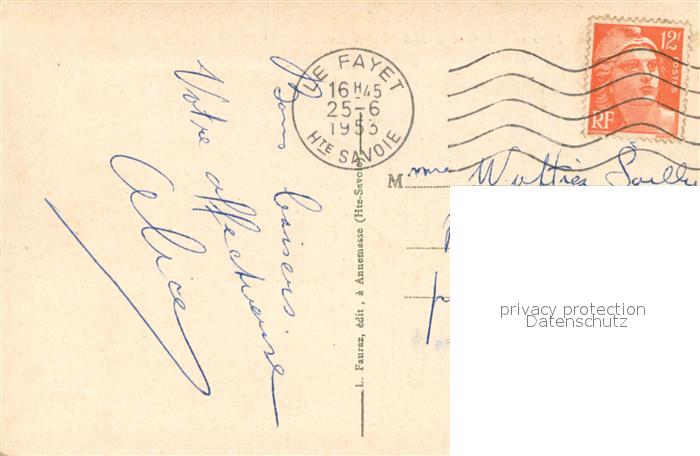 Bons baisers
Votre affectueuse
Alice
LE FAYET
16H45
25-6
1953
HTE SAVOIE
12F
POSTES
RF
L. Fauraz, édit, à Annemasse (Hte-Savoie)
Mme
privacy protection
Datenschutz